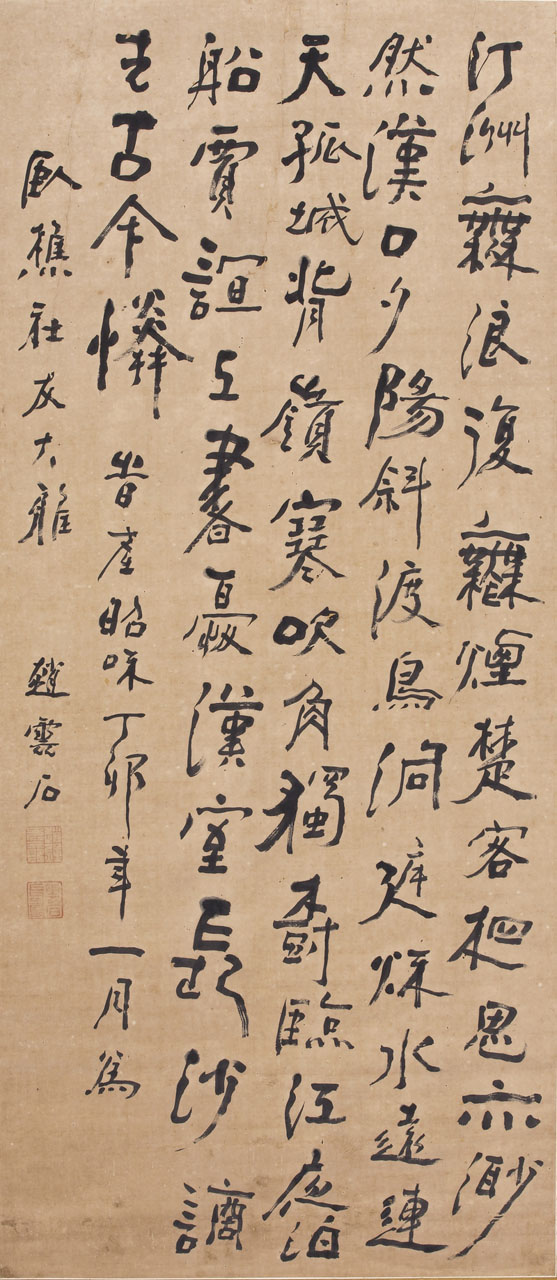 汀洲無浪復無煙楚客相思亦渺
然漢口夕陽斜渡鳥洞庭秋水遠連
天孤城背嶺寒吹角獨樹臨江夜泊
船賈誼上書憂漢室長沙謫
去古今憐 丁卯年一月為
臥樵社友大雅 趙雲石